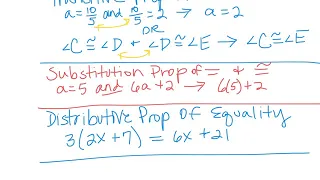 a = 10/5 and 10/5 = 2 → a = 2
OR
∠C ≅ ∠D + ∠D ≅ ∠E → ∠C ≅ ∠E
Substitution Prop of = & ≅
a = 5 and 6a + 2 → 6(5) + 2
Distributive Prop Of Equality
3(2x + 7) = 6x + 21